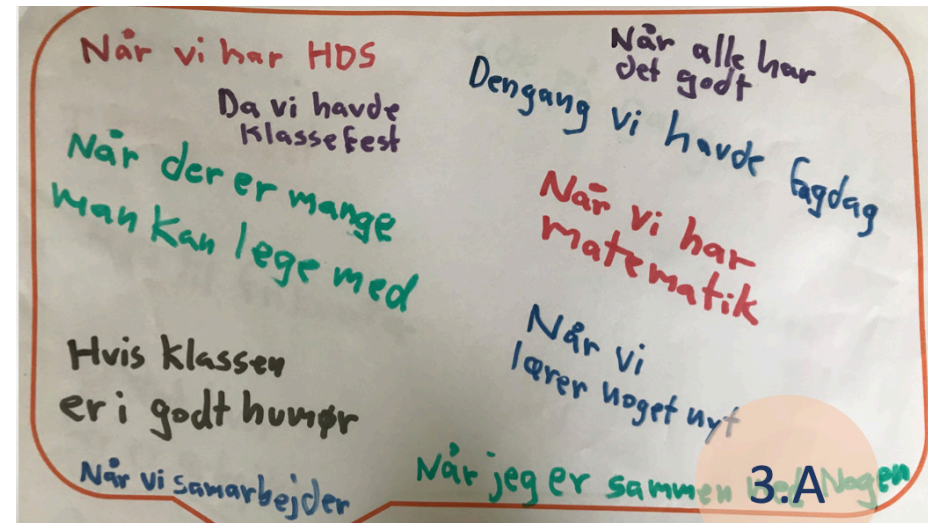 Når vi har HDS
Da vi havde
Klassefest
Når der er mange
man kan lege med
Hvis klassen
er i godt humør
Når vi samarbejder
Når alle har
det godt
Dengang vi havde fagdag
Når vi har
matematik
Når vi
lærer noget nyt
Når jeg er sammen med Nogen
3.A